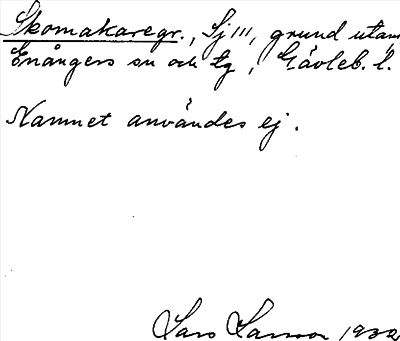 Skomakaregr., Sj III, grund utan
Enångers sn och tg, Gävleb. l.
Namnet användes ej.
Lars Larsson 1932